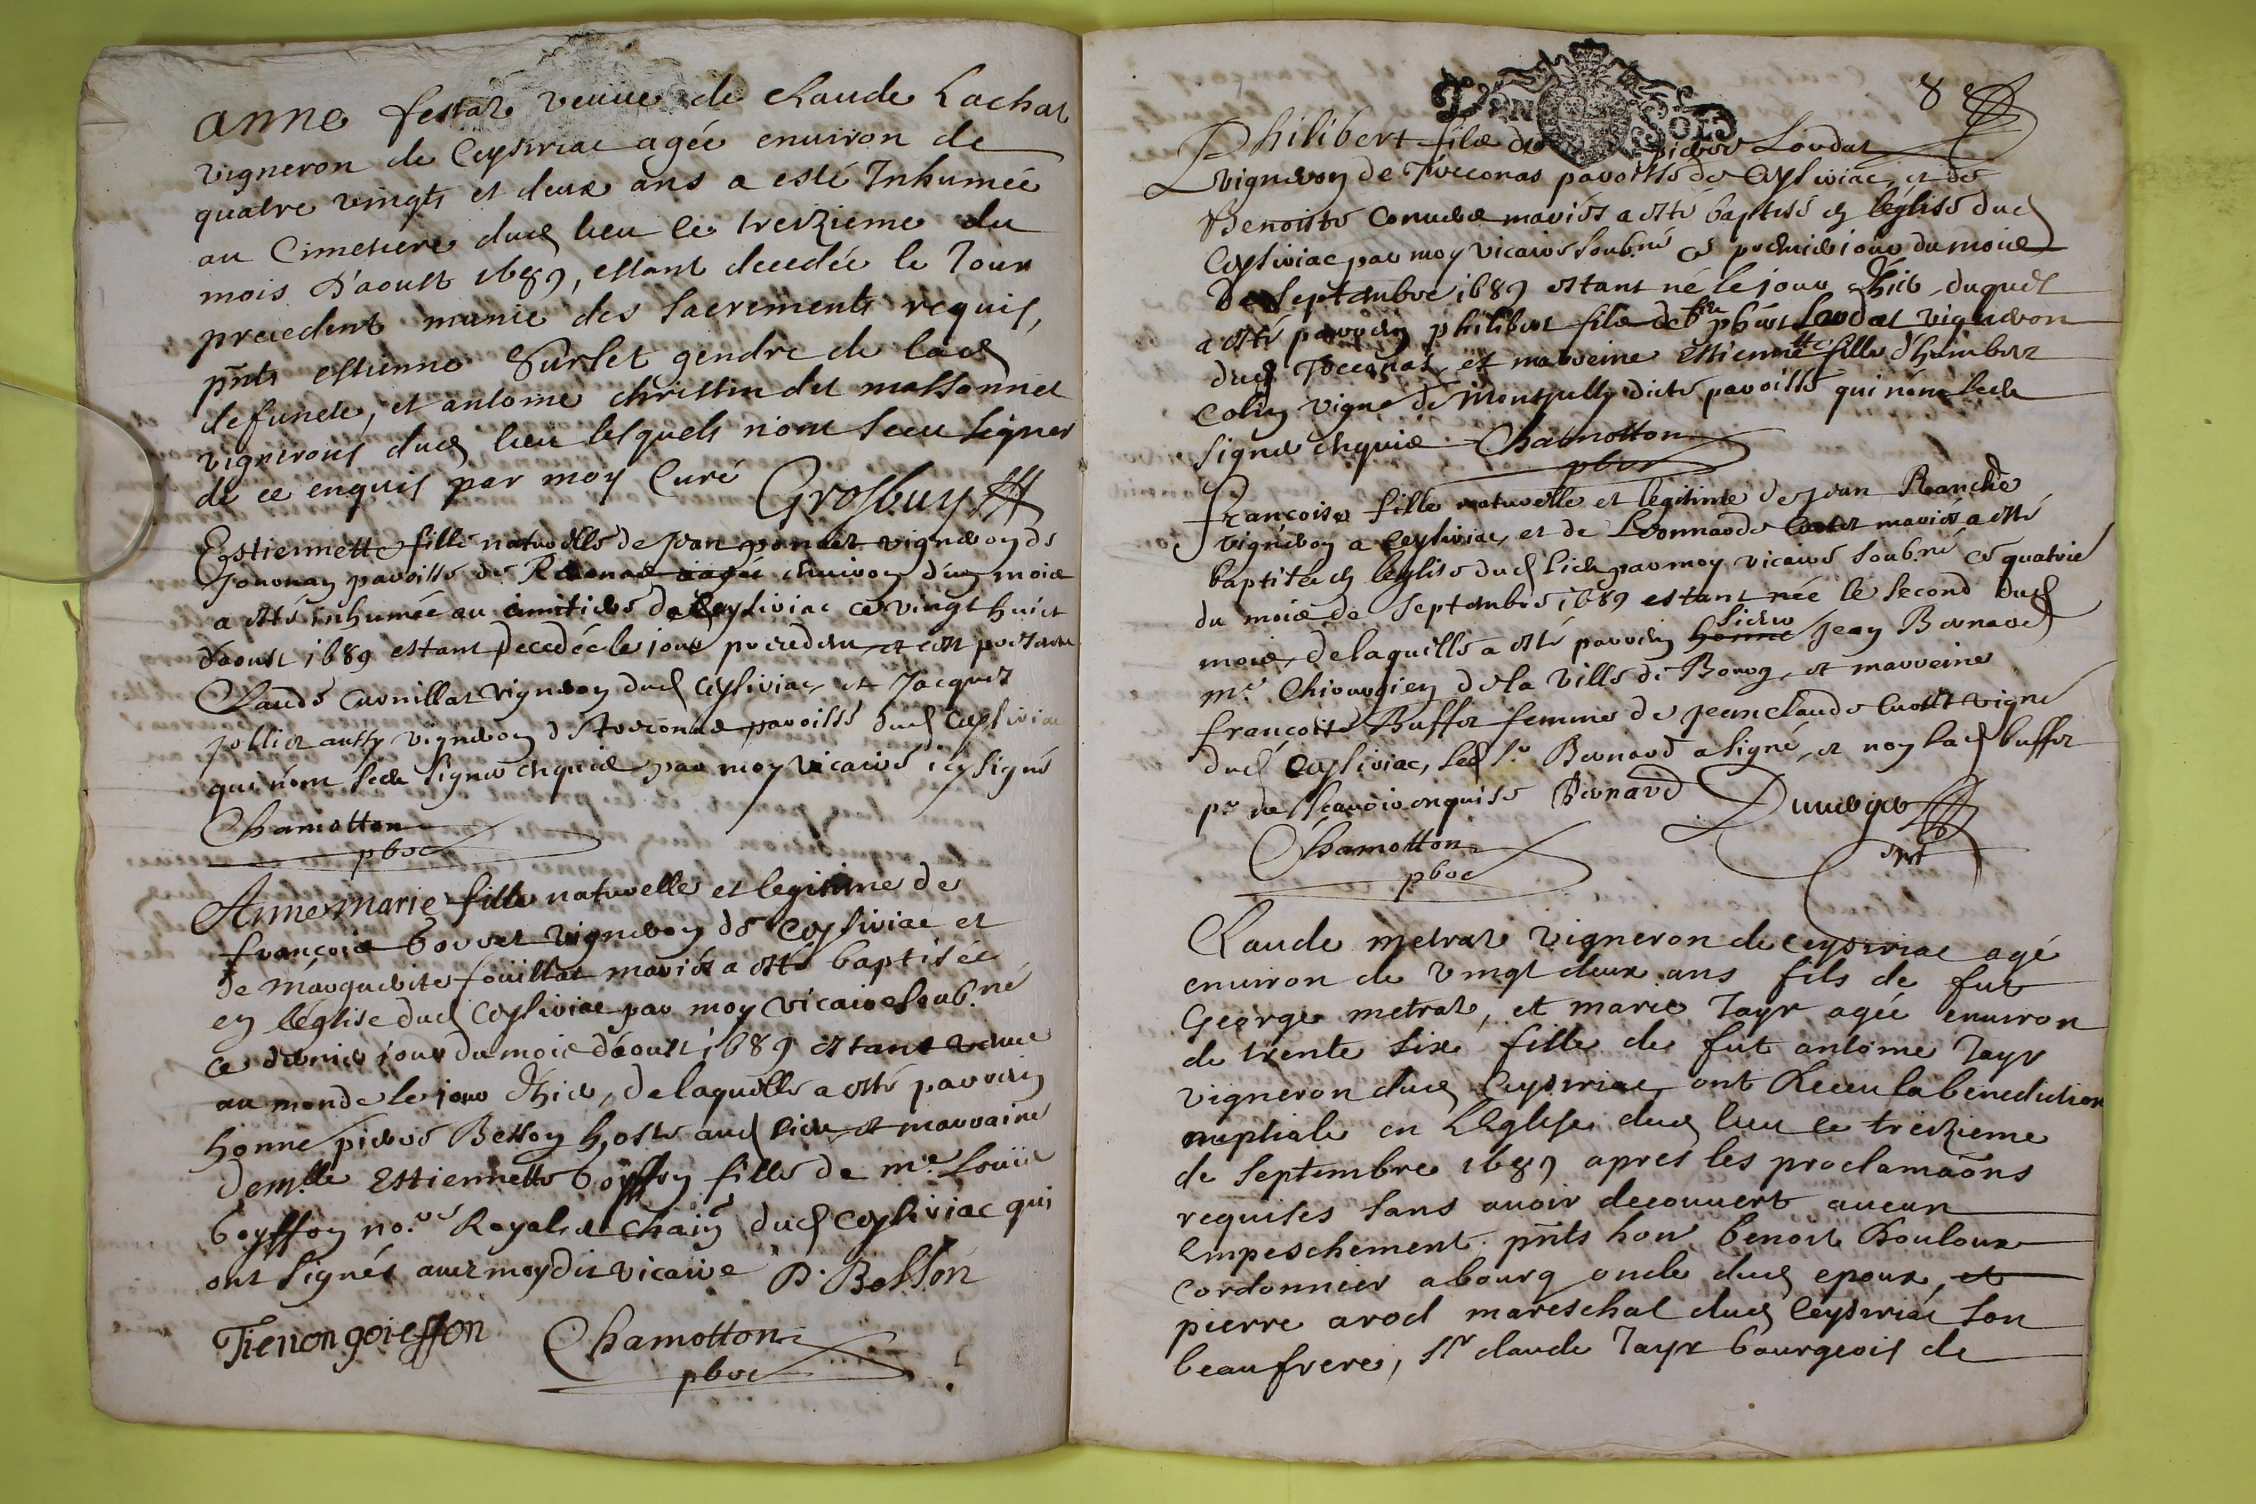 anne festaz veuve de Claude Lachat
vigneron de Ceyseriac agée environ de
quatre vingts et deux ans a esté Inhumée
au Cimetiere dud lieu le treizieme du
mois d'aoust 1689, estant decedée le Jour
precedent munie des sacrements requis,
pnts estienne Surlet gendre de lad
defuncte, et antoine christin dit massonnet
vignerons dud lieu lesquels n'ont sceu signer
de ce enquis par moy Curé Grosbuy
Estiennette fille naturelle de Jean poncet vigneron de
Journan paroisse de environ d'un moix
a esté inhumée au cimitiere de Ceyseriac ce vingt huict
d'aoust 1689 estant decedée le jour precedent et ont
Claude Curnillat vigneron dud Ceyseriac et Jacques
jollier aussy vigneron de Treconas paroisse dud Ceyseriac
qui n'ont sceu signer enquis par moy vicaire icy signé
Chamotton
pbre
Anne Marie fille naturelle et legitime de
françois gouvet vigneron de Ceyseriac et
de Marguerite fouillat mariés a esté baptisée
en l'église dud Ceyseriac par moy vicaire soub.né
ce dernier jour du mois d'aoust 1689 estant venue
au monde le jour d'hier, de laquelle a esté parrain
honne pierre Besson hoste aud lieu et marraine
Dem.lle Estiennette goyffon fille de me. Louis
goyffon no.re Royal et Chain dud Ceyseriac qui
ont signés avec moy dit vicaire P. Besson
Tienon goieffon Chamotton
pbre
DEN SOLD
8e
Philibert filz de pierre Loudat
vigneron de Treconas paroisse de Ceyseriac, et de
Benoiste Cornue mariés a esté baptisé en l'église dud
Ceyseriac par moy vicaire soub.né ce premier jour du mois
De septembre 1689 estant né le jour d'hier, duquel
a esté parrain philibert filz de phert Loudat vigneron
dud Treconas, et marreine Estiennette fille d'humbert
Colin vigne. de Montjully dicte paroisse qui n'ont sceu
signer enquis Chamotton
pbre
françoise fille naturelle et légitime de Jean Ranche
vigneron a Ceyseriac, et de Leonnarde Cartet mariés a esté
baptisée en l'église dud lieu par moy vicaire soub.né ce quatrie
du mois de septembre 1689 estant née le second dud
mois, de laquelle a esté parrain sieur Jean Bernard
me. Chirurgien de la ville de Bourg, et marreine
françoise Buffet femme de Jean Claude Curtet vigne
dud Ceyseriac, led sr. Bernard a signé, et non lad buffet
pr ne sçavoir enquise Bernard
Chamotton
pbre
Claude metraz vigneron de Ceyseriac agé
environ de vingt deux ans fils de fut
George metraz, et marie Tayr agée environ
de trente six fille de fut antoine Tayr
vigneron dud Ceyseriac ont Receu la benediction
nuptiale en L'Eglise dud lieu le treizieme
de septembre 1689 apres les proclamaons
requises sans avoir decouvert aucun
empeschement. pnts hon benoit Bouloux
cordonnier a bourg oncle dud epoux, et
pierre arod mareschal dud Ceyseriac son
beaufrere, sr claude Tayr bourgeois de